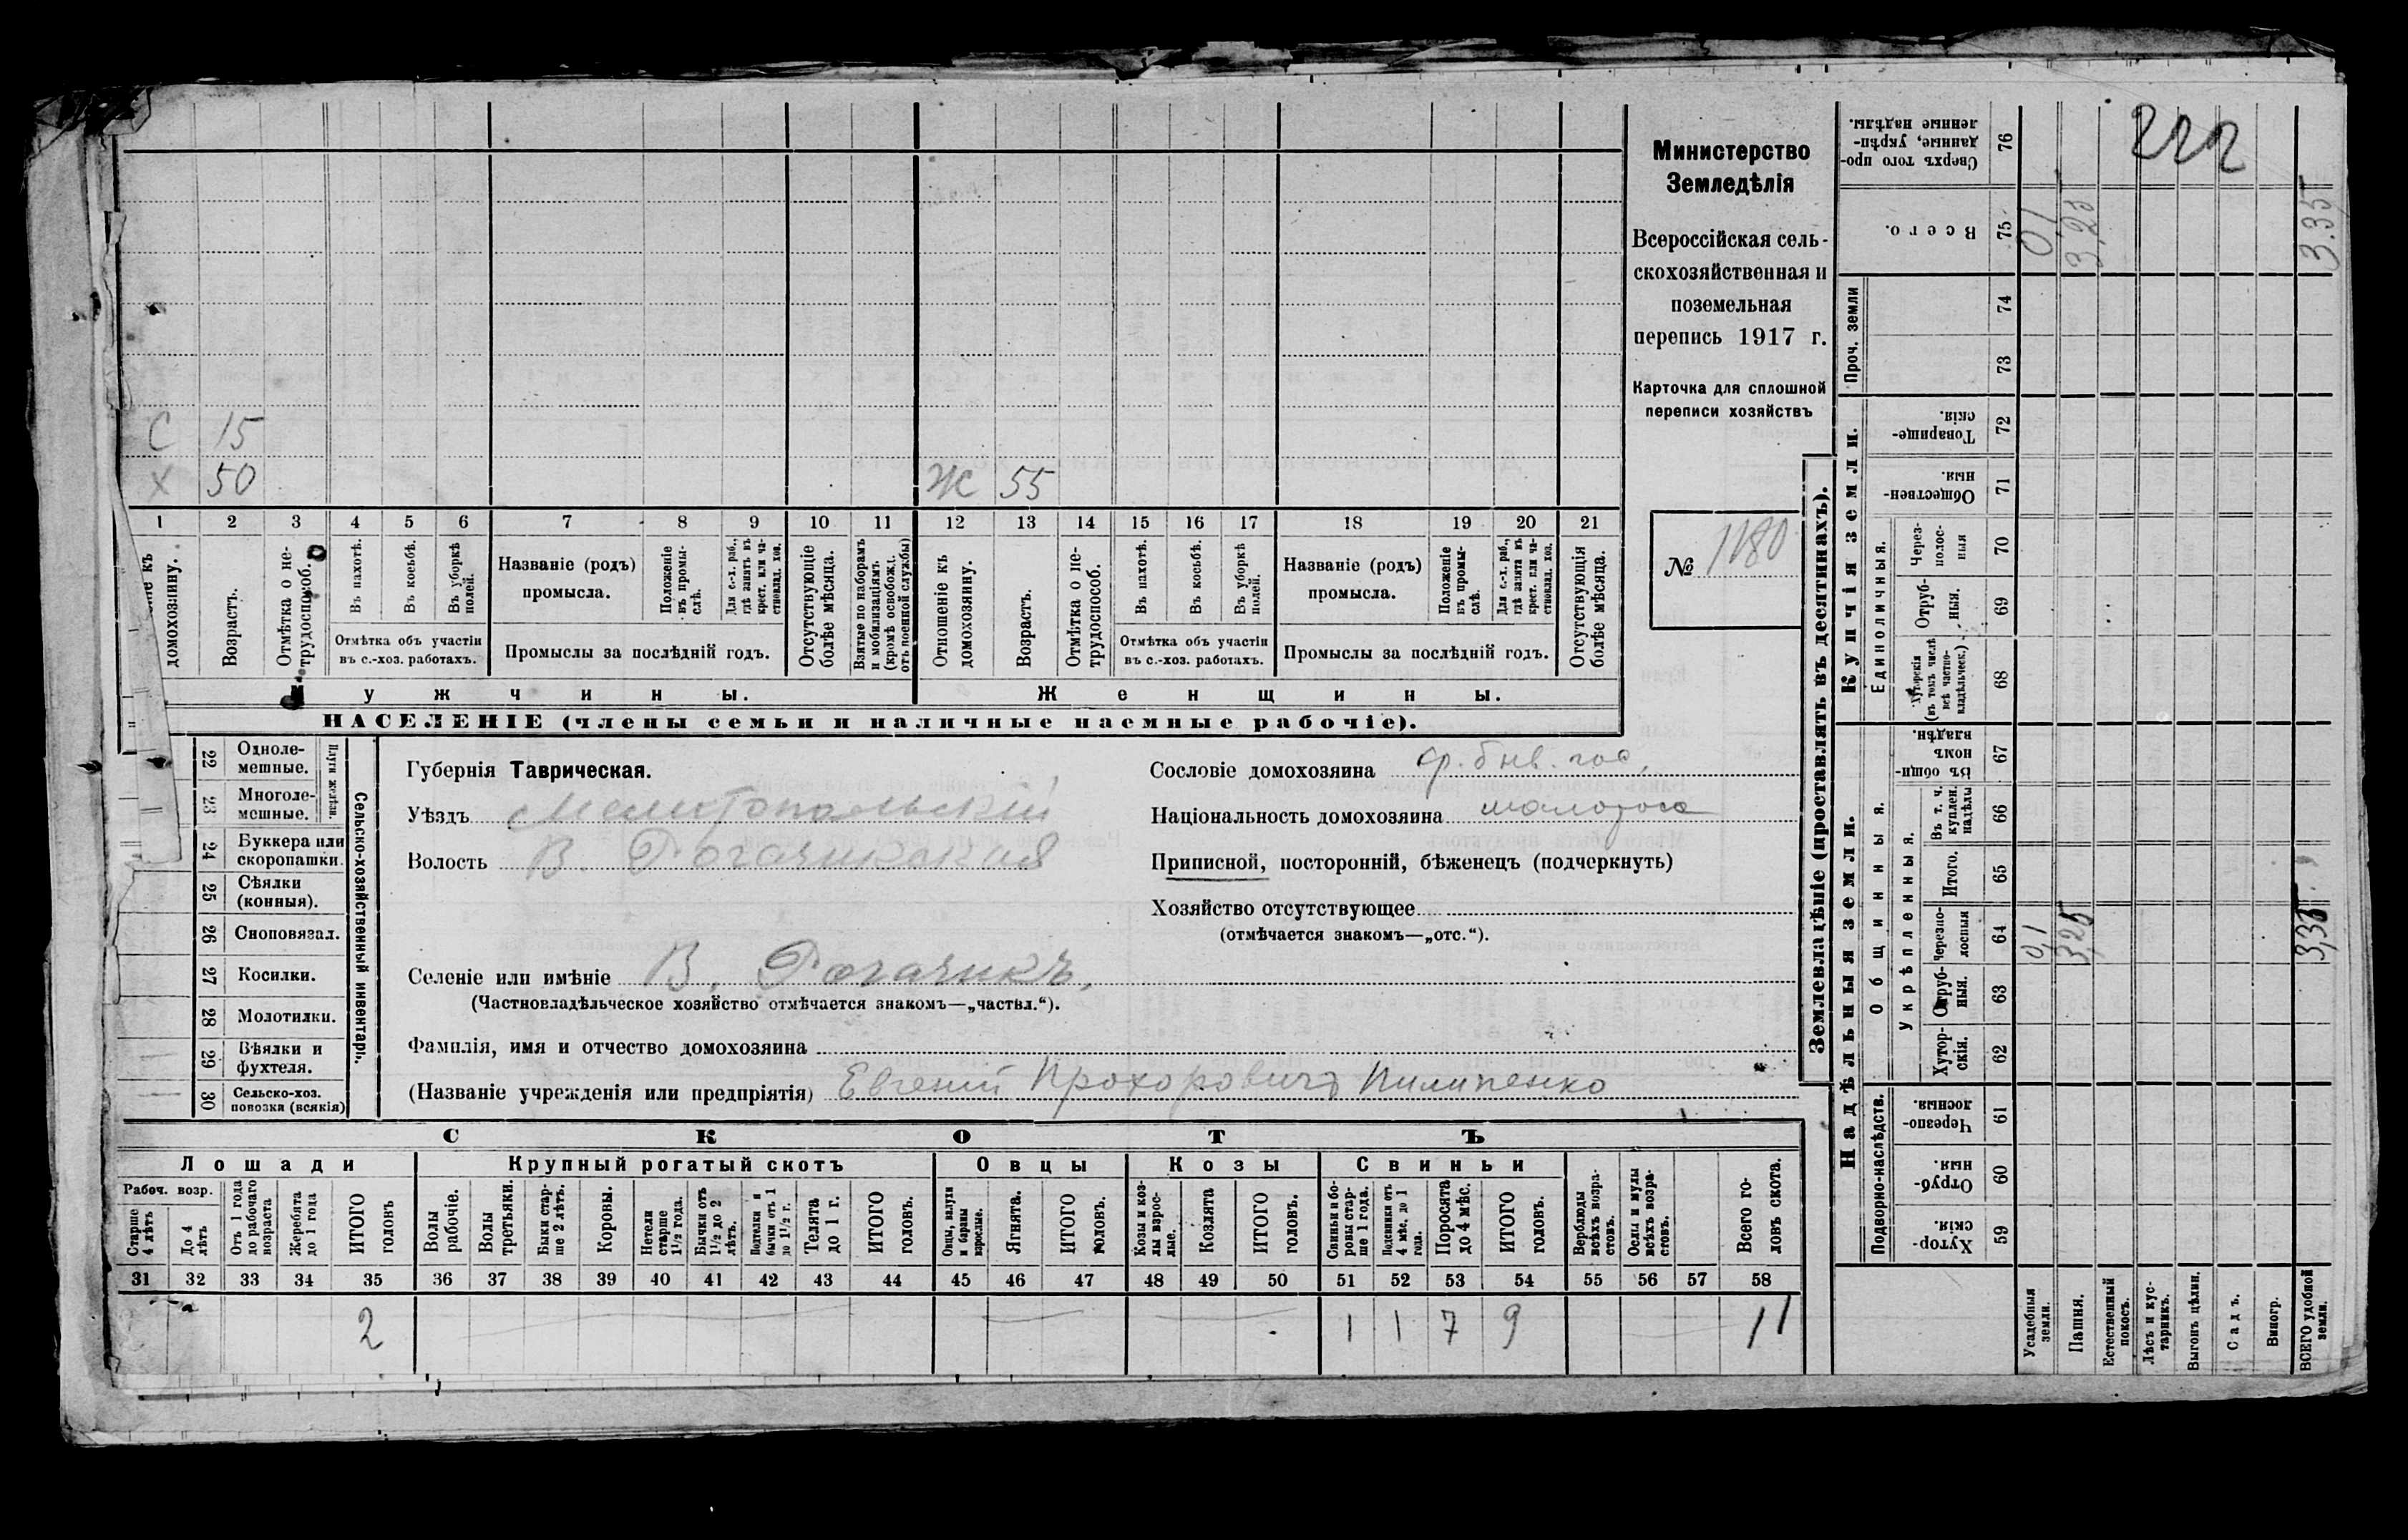 С 15
Х 50
Ж 55
1 2 3 4 5 6 7 8 9 10 11 12 13 14 15 16 17 18 19 20 21
домохозяину.
Возрастъ.
Отмѣтка о не-
трудоспособ.
Въ пахотѣ.
Въ косьбѣ.
Въ уборкѣ
полей.
Отмѣтка объ участіи
въ с.-хоз. работахъ.
Названіе (родъ)
промысла.
Положеніе
въ промы-
слѣ.
Для с.-х. раб.,
гдѣ занятъ въ
крест. или ча-
стновлад. хоз.
Промыслы за послѣдній годъ.
Отсутствующіе
болѣе мѣсяца.
Взятые по наборамъ
и мобилизаціямъ
(кромѣ освобожд.
отъ военной службы)
Отношеніе къ
домохозяину.
Возрастъ.
Отмѣтка о не-
трудоспособ.
Въ пахотѣ.
Въ косьбѣ.
Въ уборкѣ
полей.
Отмѣтка объ участіи
въ с.-хоз. работахъ.
Названіе (родъ)
промысла.
Положеніе
въ промы-
слѣ.
Для с.-х. раб.,
гдѣ занята въ
крест. или ча-
стновлад. хоз.
Промыслы за послѣдній годъ.
Отсутствующія
болѣе мѣсяца.
Мужчины.
Женщины.
НАСЕЛЕНІЕ (члены семьи и наличные наемные рабочіе).
Министерство
Земледѣлія
Всероссійская сель-
скохозяйственная и
поземельная
перепись 1917 г.
Карточка для сплошной
переписи хозяйствъ
№ 1180
22 Одноле-
мешные.
23 Многоле-
мешные.
Плуги желѣзн.
24 Буккера или
скоропашки.
25 Сѣялки
(конныя).
26 Сноповязал.
27 Косилки.
28 Молотилки.
29 Вѣялки и
фухтеля.
30 Сельско-хоз.
повозки (всякія)
Сельско-хозяйственный инвентарь.
Губернія Таврическая.
Уѣздъ Мелитопольскій
Волость В. Рогачикская
Селеніе или имѣніе В. Рогачикъ.
(Частновладѣльческое хозяйство отмѣчается знакомъ—„частвл.“).
Фамилія, имя и отчество домохозяина
(Названіе учрежденія или предпріятія) Евгеній Прохоровичъ Пилипенко
Сословіе домохозяина
Національность домохозяина малоросс
Приписной, посторонній, бѣженецъ (подчеркнуть)
Хозяйство отсутствующее
(отмѣчается знакомъ—„отс.“).
СКОТЪ
Лошади
Крупный рогатый скотъ
Овцы
Козы
Свиньи
Рабоч. возр.
Старше
4 лѣтъ
До 4
лѣтъ
Отъ 1 года
до рабочаго
возраста
Жеребята
до 1 года
ИТОГО
головъ
Волы
рабочіе.
Волы
третьяки.
Быки стар-
ше 2 лѣтъ.
Коровы.
Нетели
старше
1½ года.
Бычки отъ
1½ до 2
лѣтъ.
Подтелки и
бычки отъ 1
до 1½ г.
Телята
до 1 г.
ИТОГО
головъ.
Овцы, валухи
и бараны
взрослые.
Ягнята.
ИТОГО
головъ.
Козы и коз-
лы взрос-
лые.
Козлята
ИТОГО
головъ.
Свиньи и бо-
ровы стар-
ше 1 года.
Подсвинки отъ
4 мѣс. до 1
года.
Поросята
до 4 мѣс.
ИТОГО
головъ.
Верблюды
всѣхъ возра-
стовъ.
Ослы и мулы
всѣхъ возра-
стовъ.
Всего го-
ловъ скота.
31 32 33 34 35 36 37 38 39 40 41 42 43 44 45 46 47 48 49 50 51 52 53 54 55 56 57 58
2 1 1 7 9 11
Землевладѣніе (проставлять въ десятинахъ).
Надѣльныя земли.
Купчія земли.
Проч. земли
Подворно-наслѣдств.
Общинныя.
Укрѣпленныя.
Единоличныя.
Сверхъ того про-
данные, укрѣп-
ленные надѣлы.
76
Всего.
75
0,1
3,25
3.35
222
74
73
Товарище-
скія.
72
Обществен-
ныя.
71
Через-
полос-
ныя
70
Отруб-
ныя.
69
Хуторскія
(въ томъ числѣ
всѣ частно-
владѣльческ.)
68
Въ общи-
номъ
владѣн.
67
Въ т. ч.
куплен.
надѣлы
66
Итого.
65
Черезпо-
лосныя
64
0,1
3,25
3,35
Отруб-
ныя.
63
Хутор-
скія.
62
Черезпо-
лосныя.
61
Отруб-
ныя.
60
Хутор-
скія.
59
Усадебныя
земли.
Пашня.
Естественный
покосъ.
Лѣсъ и кус-
тарникъ.
Выгонъ цѣлин.
Садъ.
Виногр.
ВСЕГО удобной
земли.